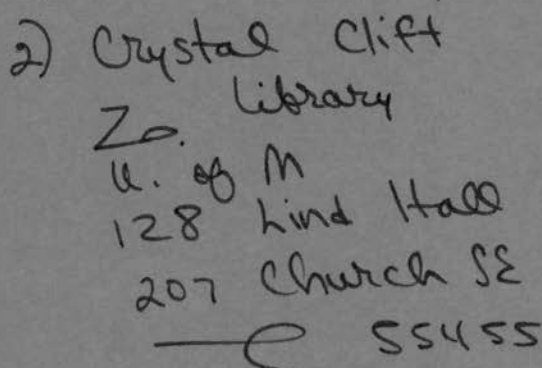 2) Crystal Clift
Library
U. of M
128 Lind Hall
207 Church SE
55455